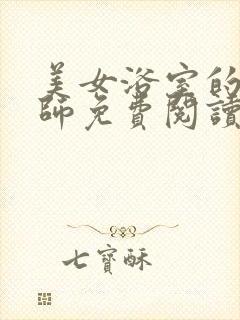 美女浴室的
師免費閱讀
七寶酥